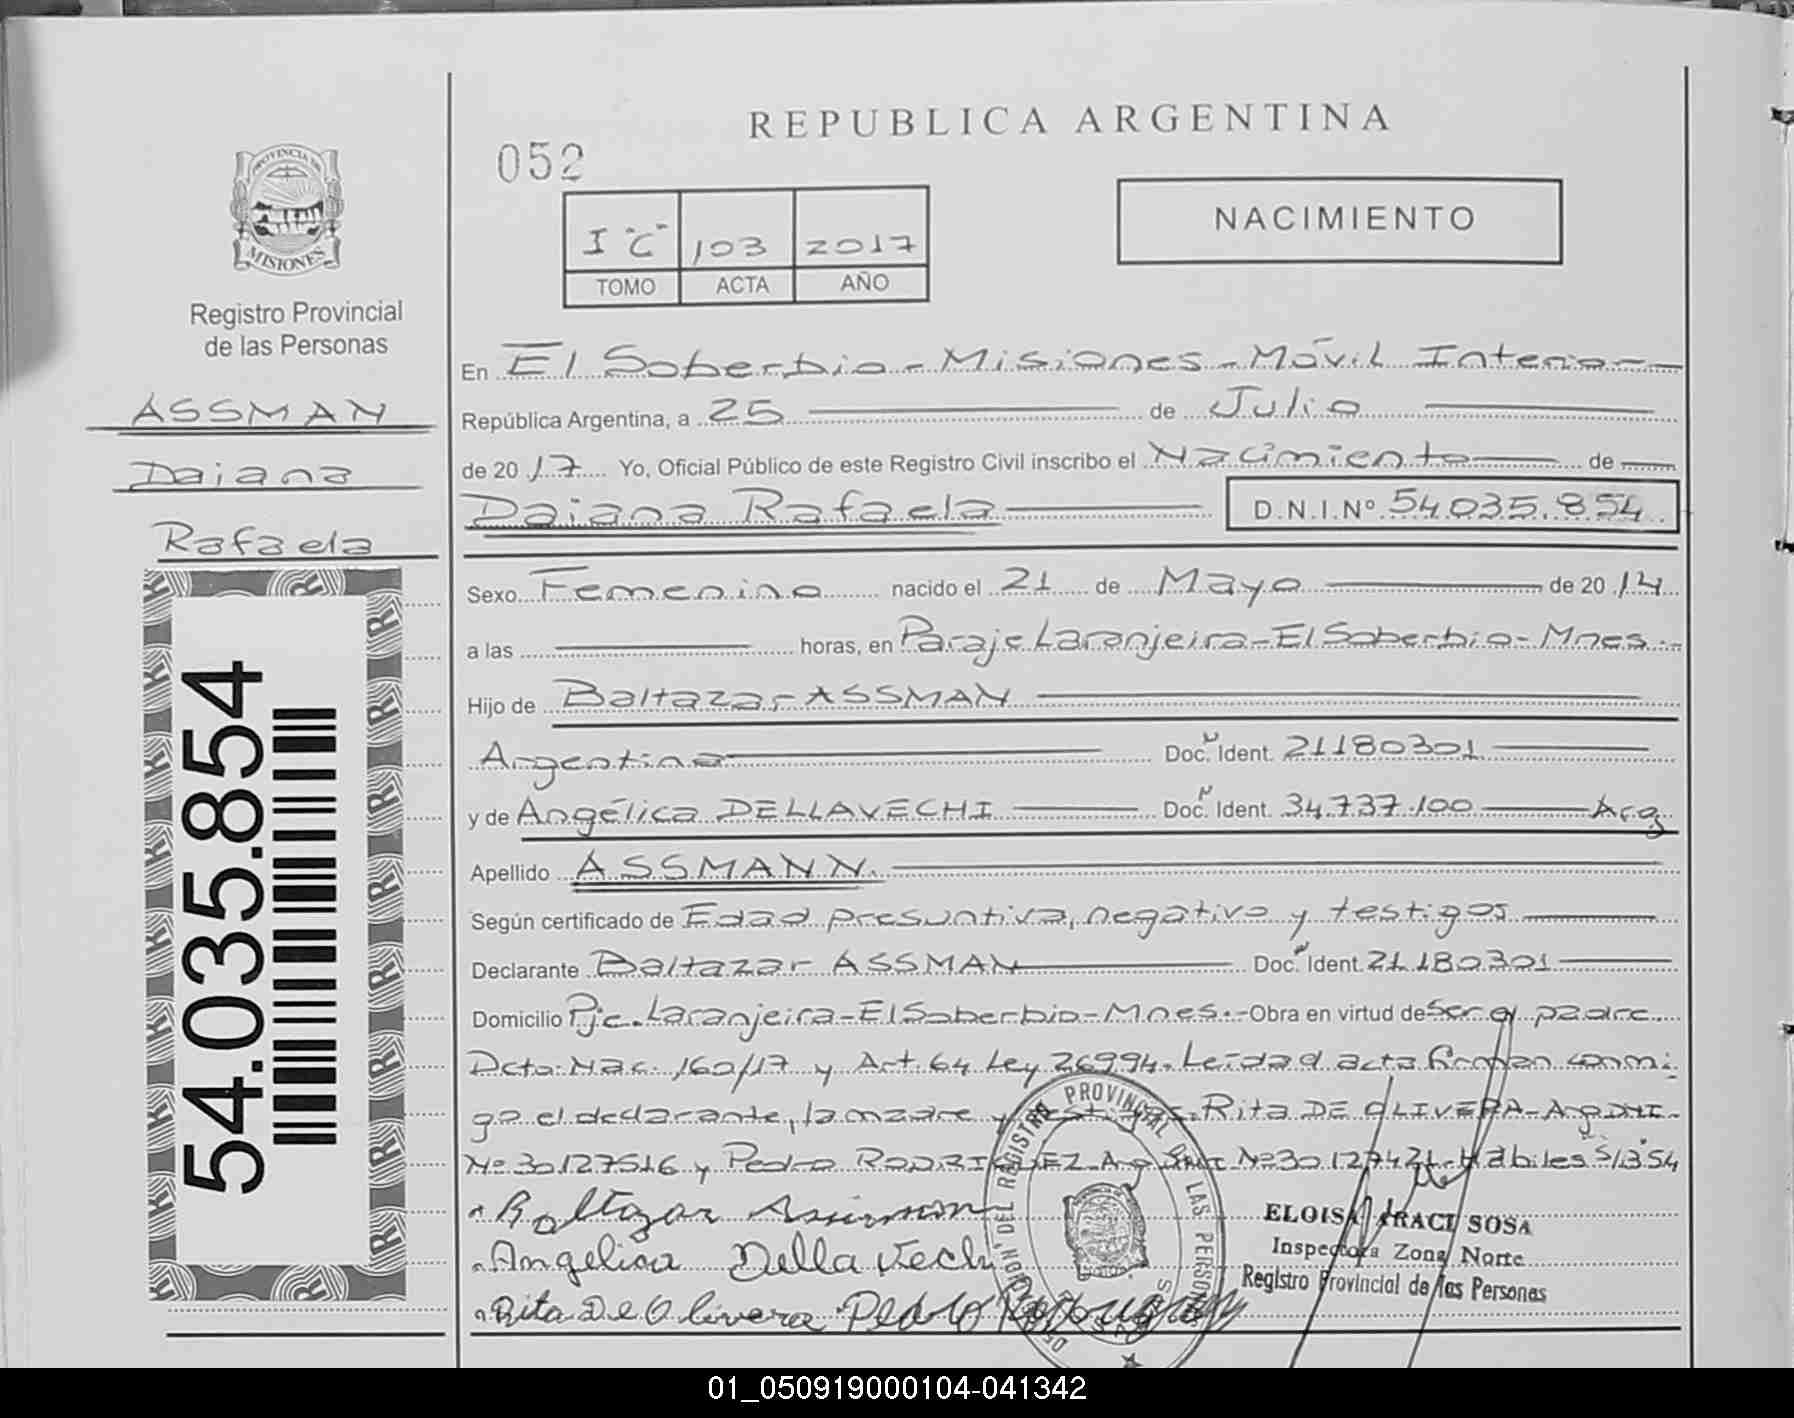 REPUBLICA ARGENTINA
052
NACIMIENTO
I "C" 103 2017
TOMO ACTA AÑO
PROVINCIA DE
MISIONES
Registro Provincial
de las Personas
ASSMAN
Daiana
Rafaela
54.035.854
En El Soberbio - Misiones - Móvil Interior
República Argentina, a 25 de Julio
de 2017 Yo, Oficial Público de este Registro Civil inscribo el Nacimiento de
Daiana Rafaela D.N.I.Nº 54.035.854
Sexo Femenino nacido el 21 de Mayo de 2014
a las horas, en Paraje Laranjeira - El Soberbio - Mnes.-
Hijo de Baltazar ASSMAN
Argentina Doc. Ident. 21180301
y de Angélica DELLAVECHI Doc. Ident. 34.737.100 Arg
Apellido ASSMANN.
Según certificado de Edad presuntiva, negativo y testigos
Declarante Baltazar ASSMAN Doc. Ident. 21180301
Domicilio Pje. Laranjeira - El Soberbio - Mnes.- Obra en virtud de ser el padre
Dcto. Nac. 160/17 y Art. 64 Ley 26994. Leída el acta firman conmi-
go el declarante, la madre y testigos. Rita DE OLIVERA - Arg DNI
Nº 30127516 y Pedro RODRIGUEZ Arg DNI Nº 30.127421 - Hábiles
Baltazar Assmann
Angelica Della Vechi
Rita De Olivera Pedro
PROVINCIAL DE LAS PERSONAS
DEL REGISTRO
ELOISA ARACI SOSA
Inspectora Zona Norte
Registro Provincial de las Personas
01_050919000104-041342